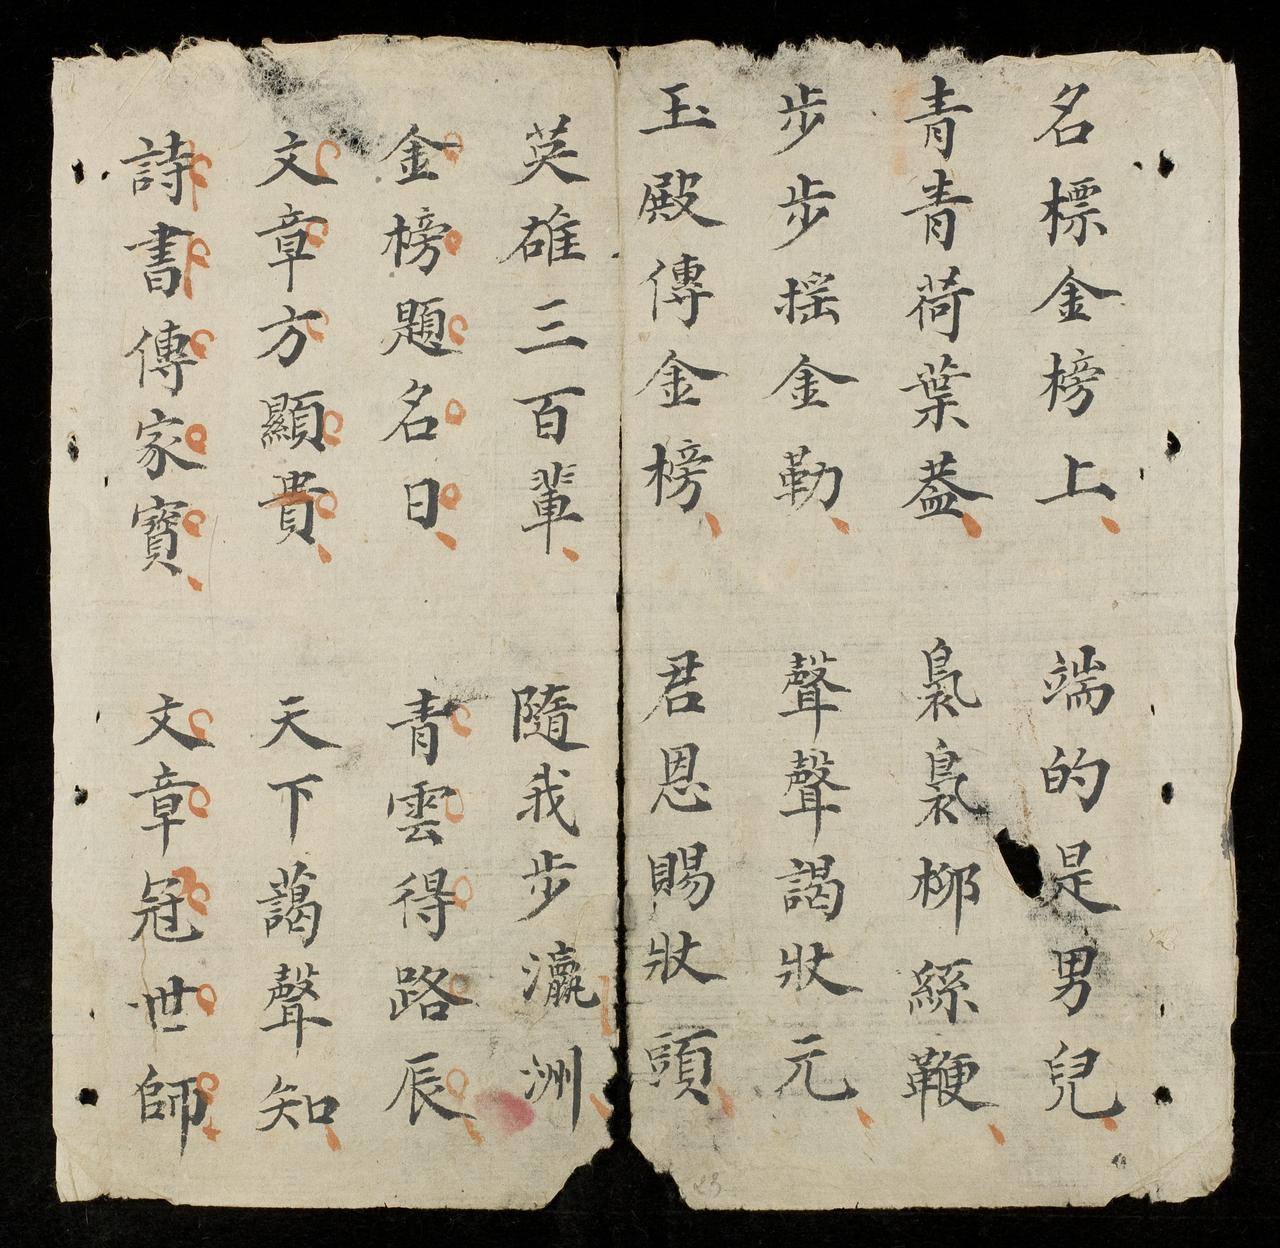 名標金榜上 端的是男兒
青青荷葉蓋 裊裊柳絲鞭
步步搖金勒 聲聲謁狀元
玉殿傳金榜 君恩賜狀頭
英雄三百輩 隨我步瀛洲
金榜題名日 青雲得路辰
文章方顯貴 天下藹聲知
詩書傳家寶 文章冠世師